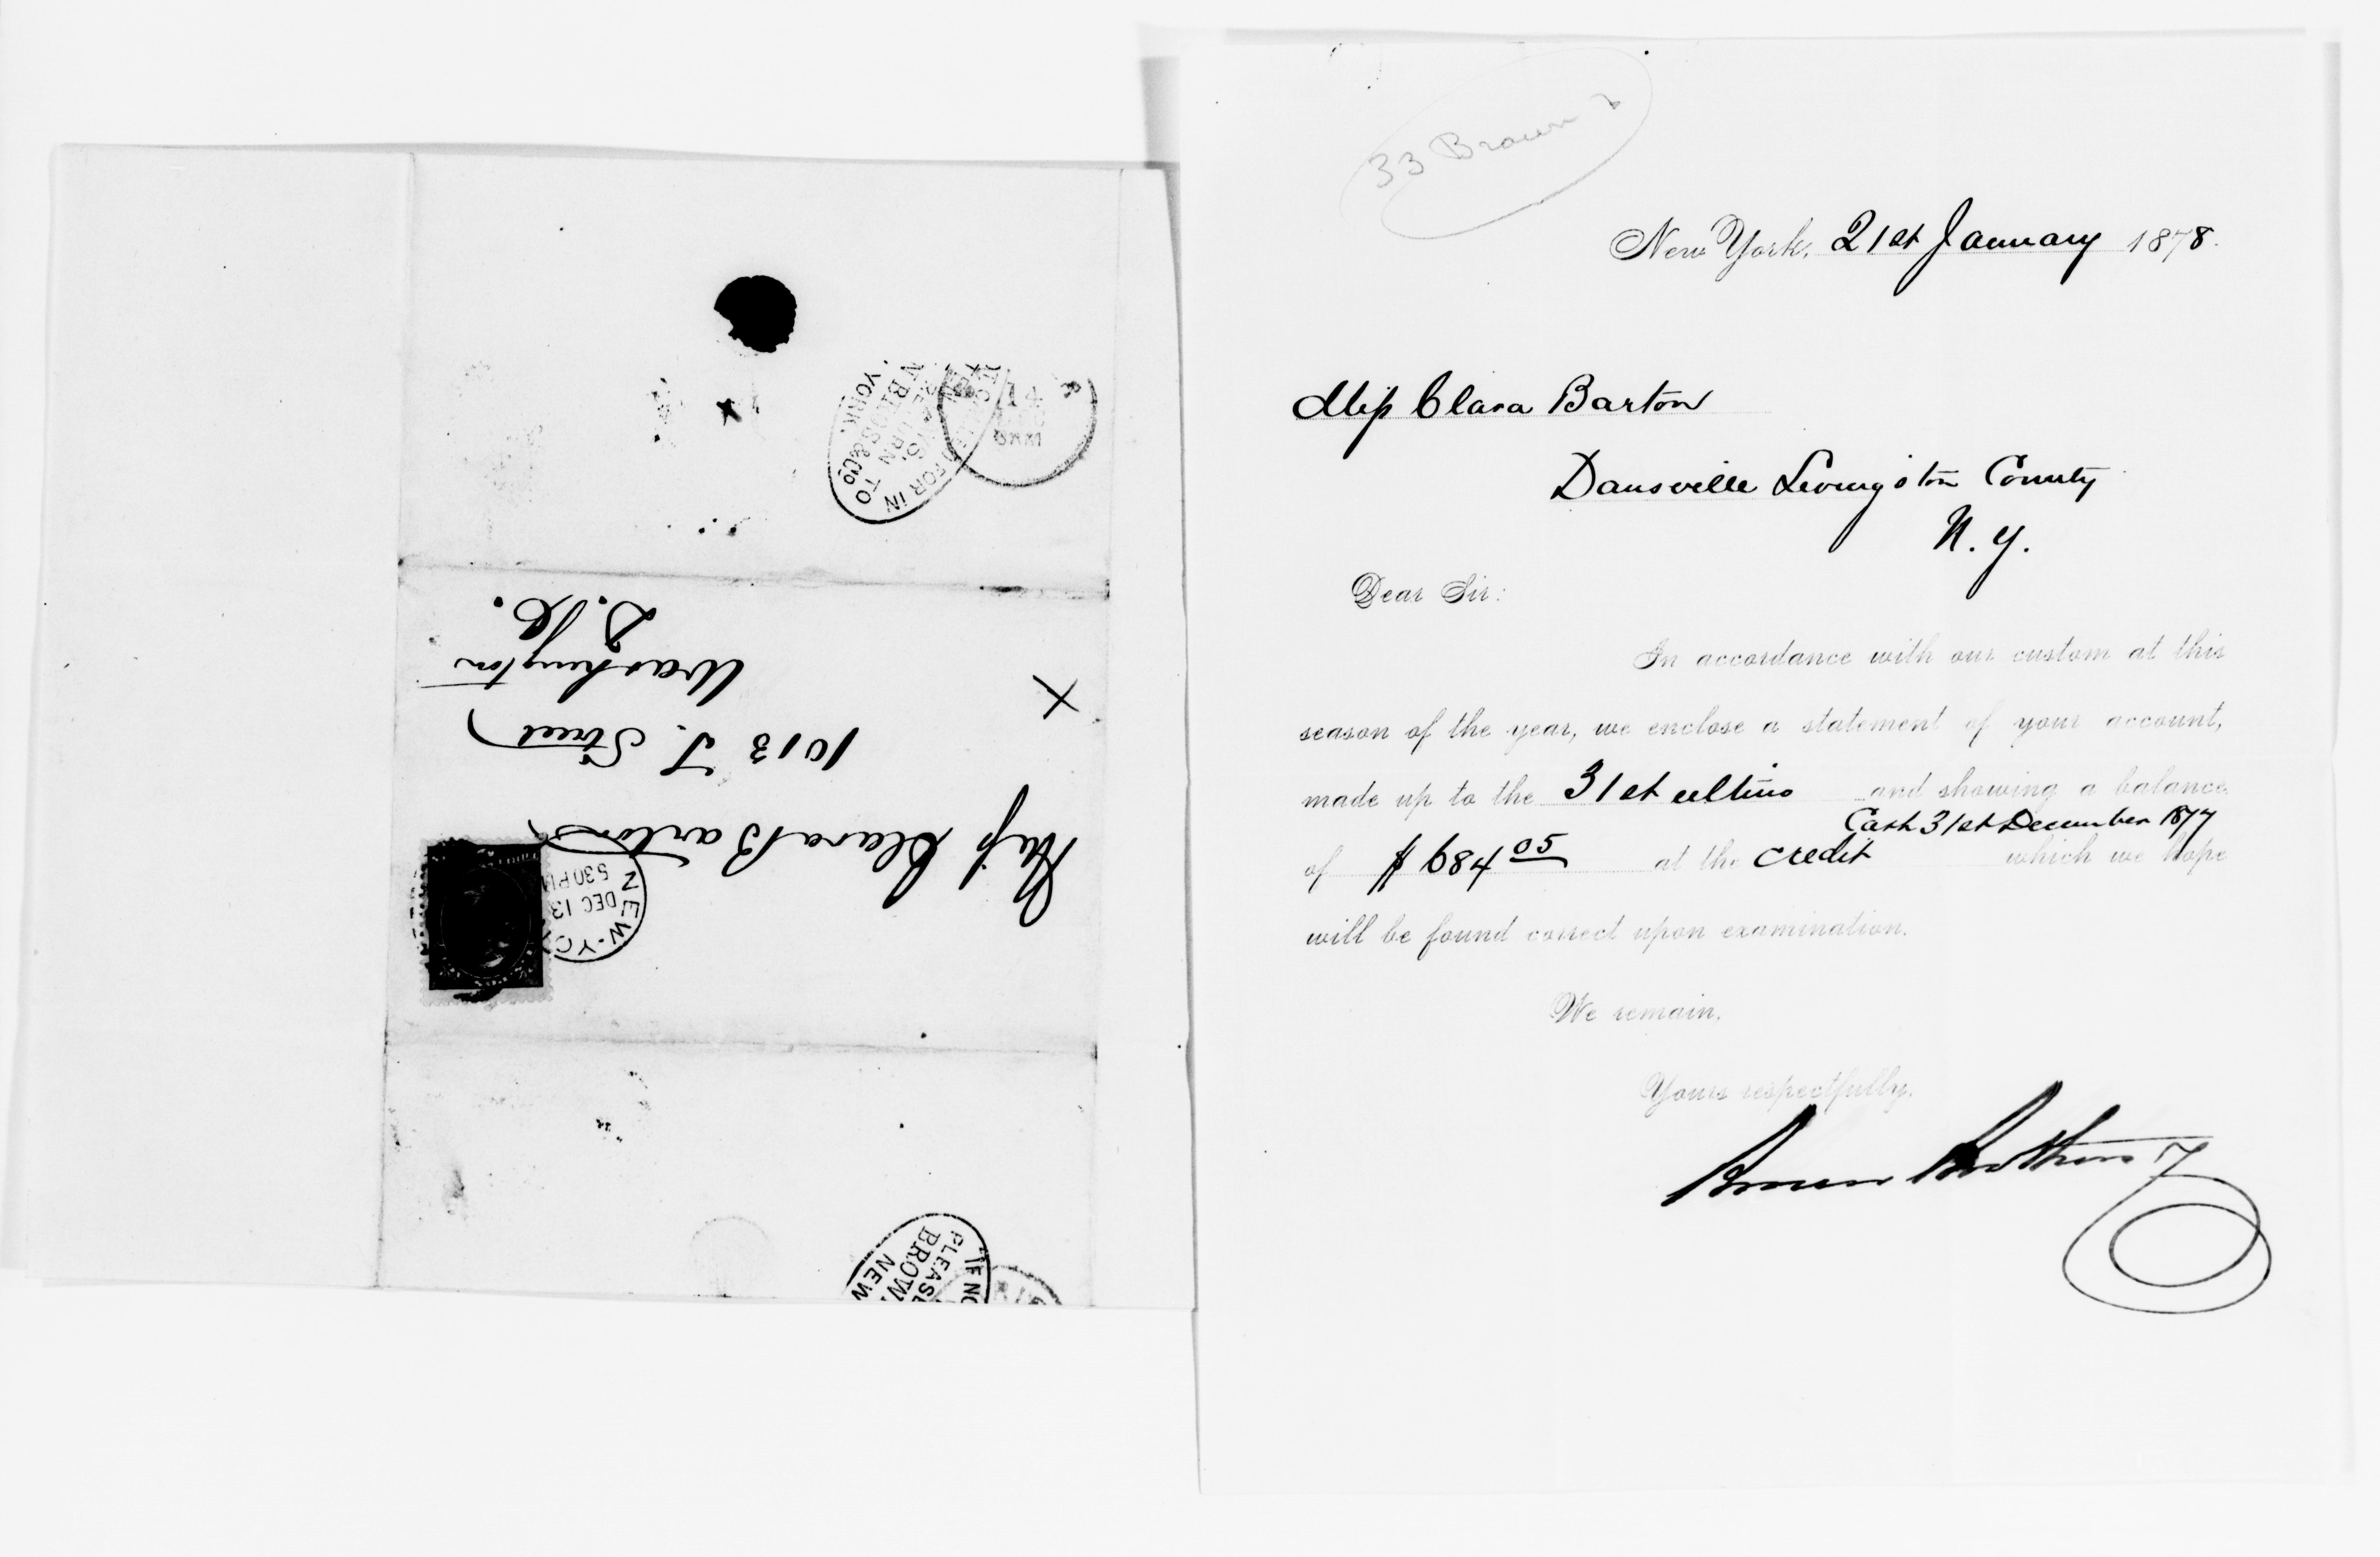 Miss Clara Barton
1013 T. Street
Washington
D.C.
NEW-YO
DEC 13
530 PM
FOR IN
S'
URN TO
N BROS & CO
YORK.
"IF NO
PLEASE
BROW
NEW
33 Brown
New York, 21st January 1878.
Miss Clara Barton
Dansville Livingston County
N. Y.
Dear Sir:
In accordance with our custom at this
season of the year, we enclose a statement of your account,
made up to the 31st ultino and showing a balance
Cash 31st December 1877
of $ 684 05 at the credit which we hope
will be found correct upon examination.
We remain,
Yours respectfully,
Brown Brothers